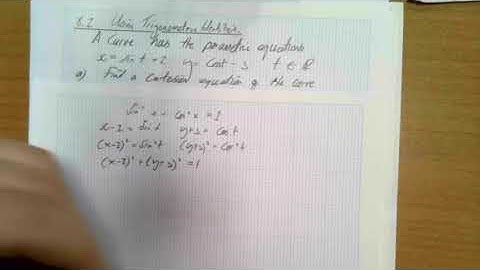 8.2 Using Trigonometric Identities
A curve has the parametric equations
x = sin t + 2 y = cos t - 3 t ∈ ℝ
a) Find a Cartesian equation of the curve
sin² + cos² x = 1
x - 2 = sin t y + 3 = cos t
(x-2)² = sin² t (y+3)² = cos² t
(x-2)² + (y+3)² = 1